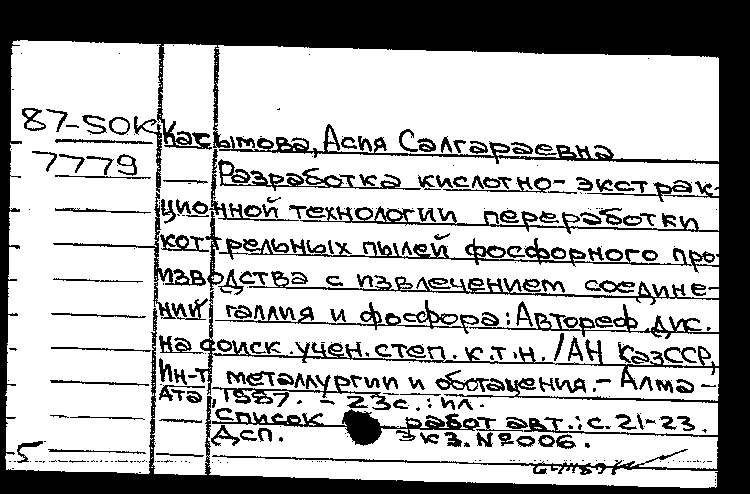 87-5ОК Касымова, Асия Салгараевна
7779 Разработка кислотно-экстрак-
ционной технологии переработки
коттрельных пылей фосфорного про-
изводства с извлечением соедине-
ний галлия и фосфора: Автореф. дис.
на соиск. учен. степ. к.т.н. /АН КазССР,
Ин-т металлургии и обогащения.- Алма-
Ата, 1987. - 23с.: ил.
Список работ авт.: с. 21-23.
Дсп. Экз. №006.
5